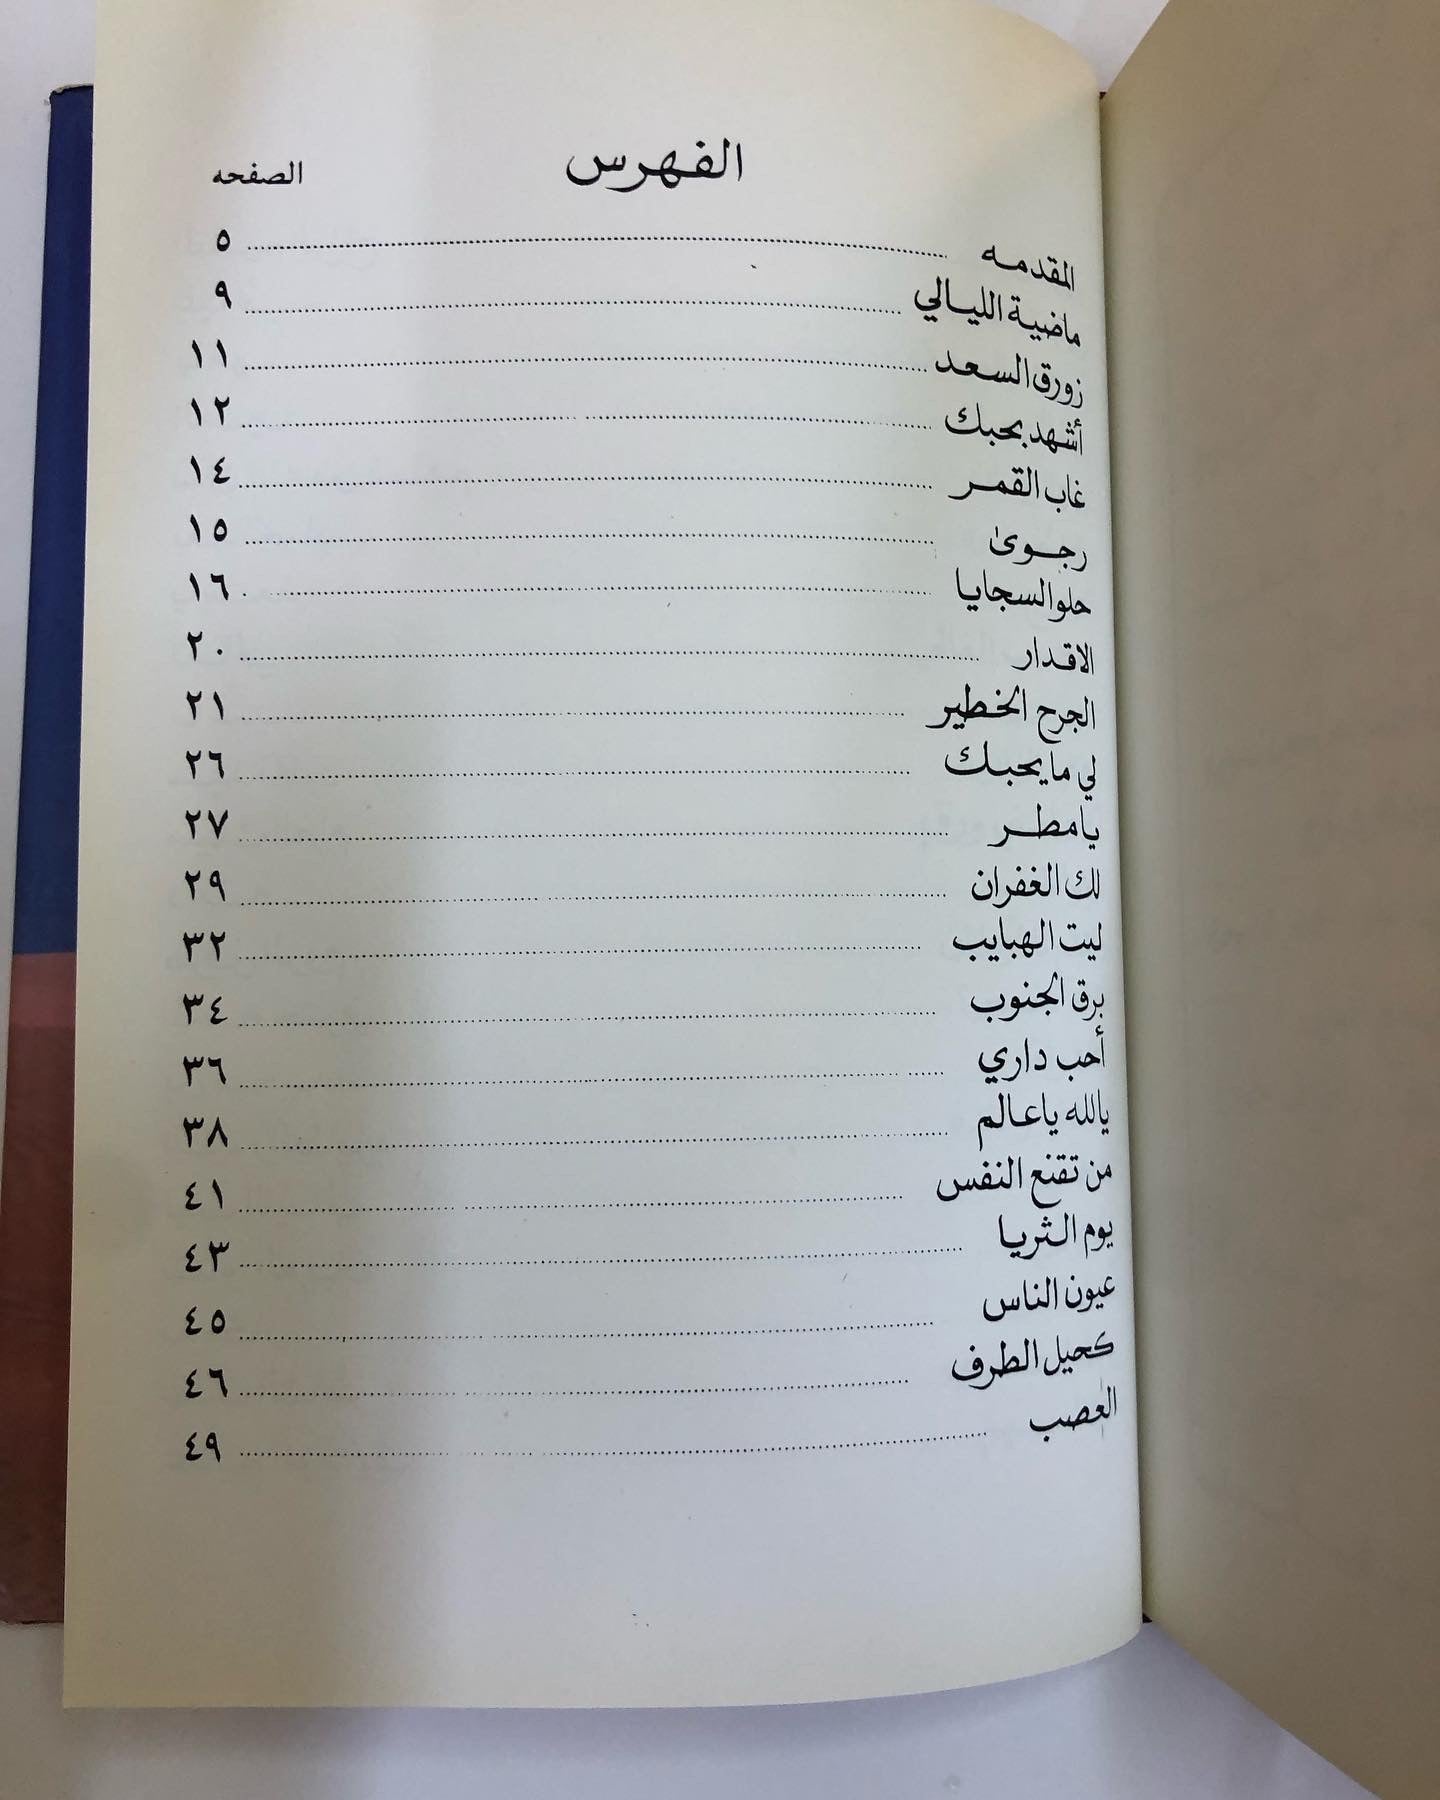 الفهرس الصفحه
المقدمه ٥
ماضية الليالي ٩
زورق السعد ١١
أشهد بحبك ١٢
غاب القمر ١٤
رجوى ١٥
حلو السجايا ١٦
الاقدار ٢٠
الجرح الخطير ٢١
لي ما يحبك ٢٦
يا مطر ٢٧
لك الغفران ٢٩
ليت الهبايب ٣٢
برق الجنوب ٣٤
أحب داري ٣٦
يالله ياعالم ٣٨
من تقنع النفس ٤١
يوم الثريا ٤٣
عيون الناس ٤٥
كحيل الطرف ٤٦
العصب ٤٩